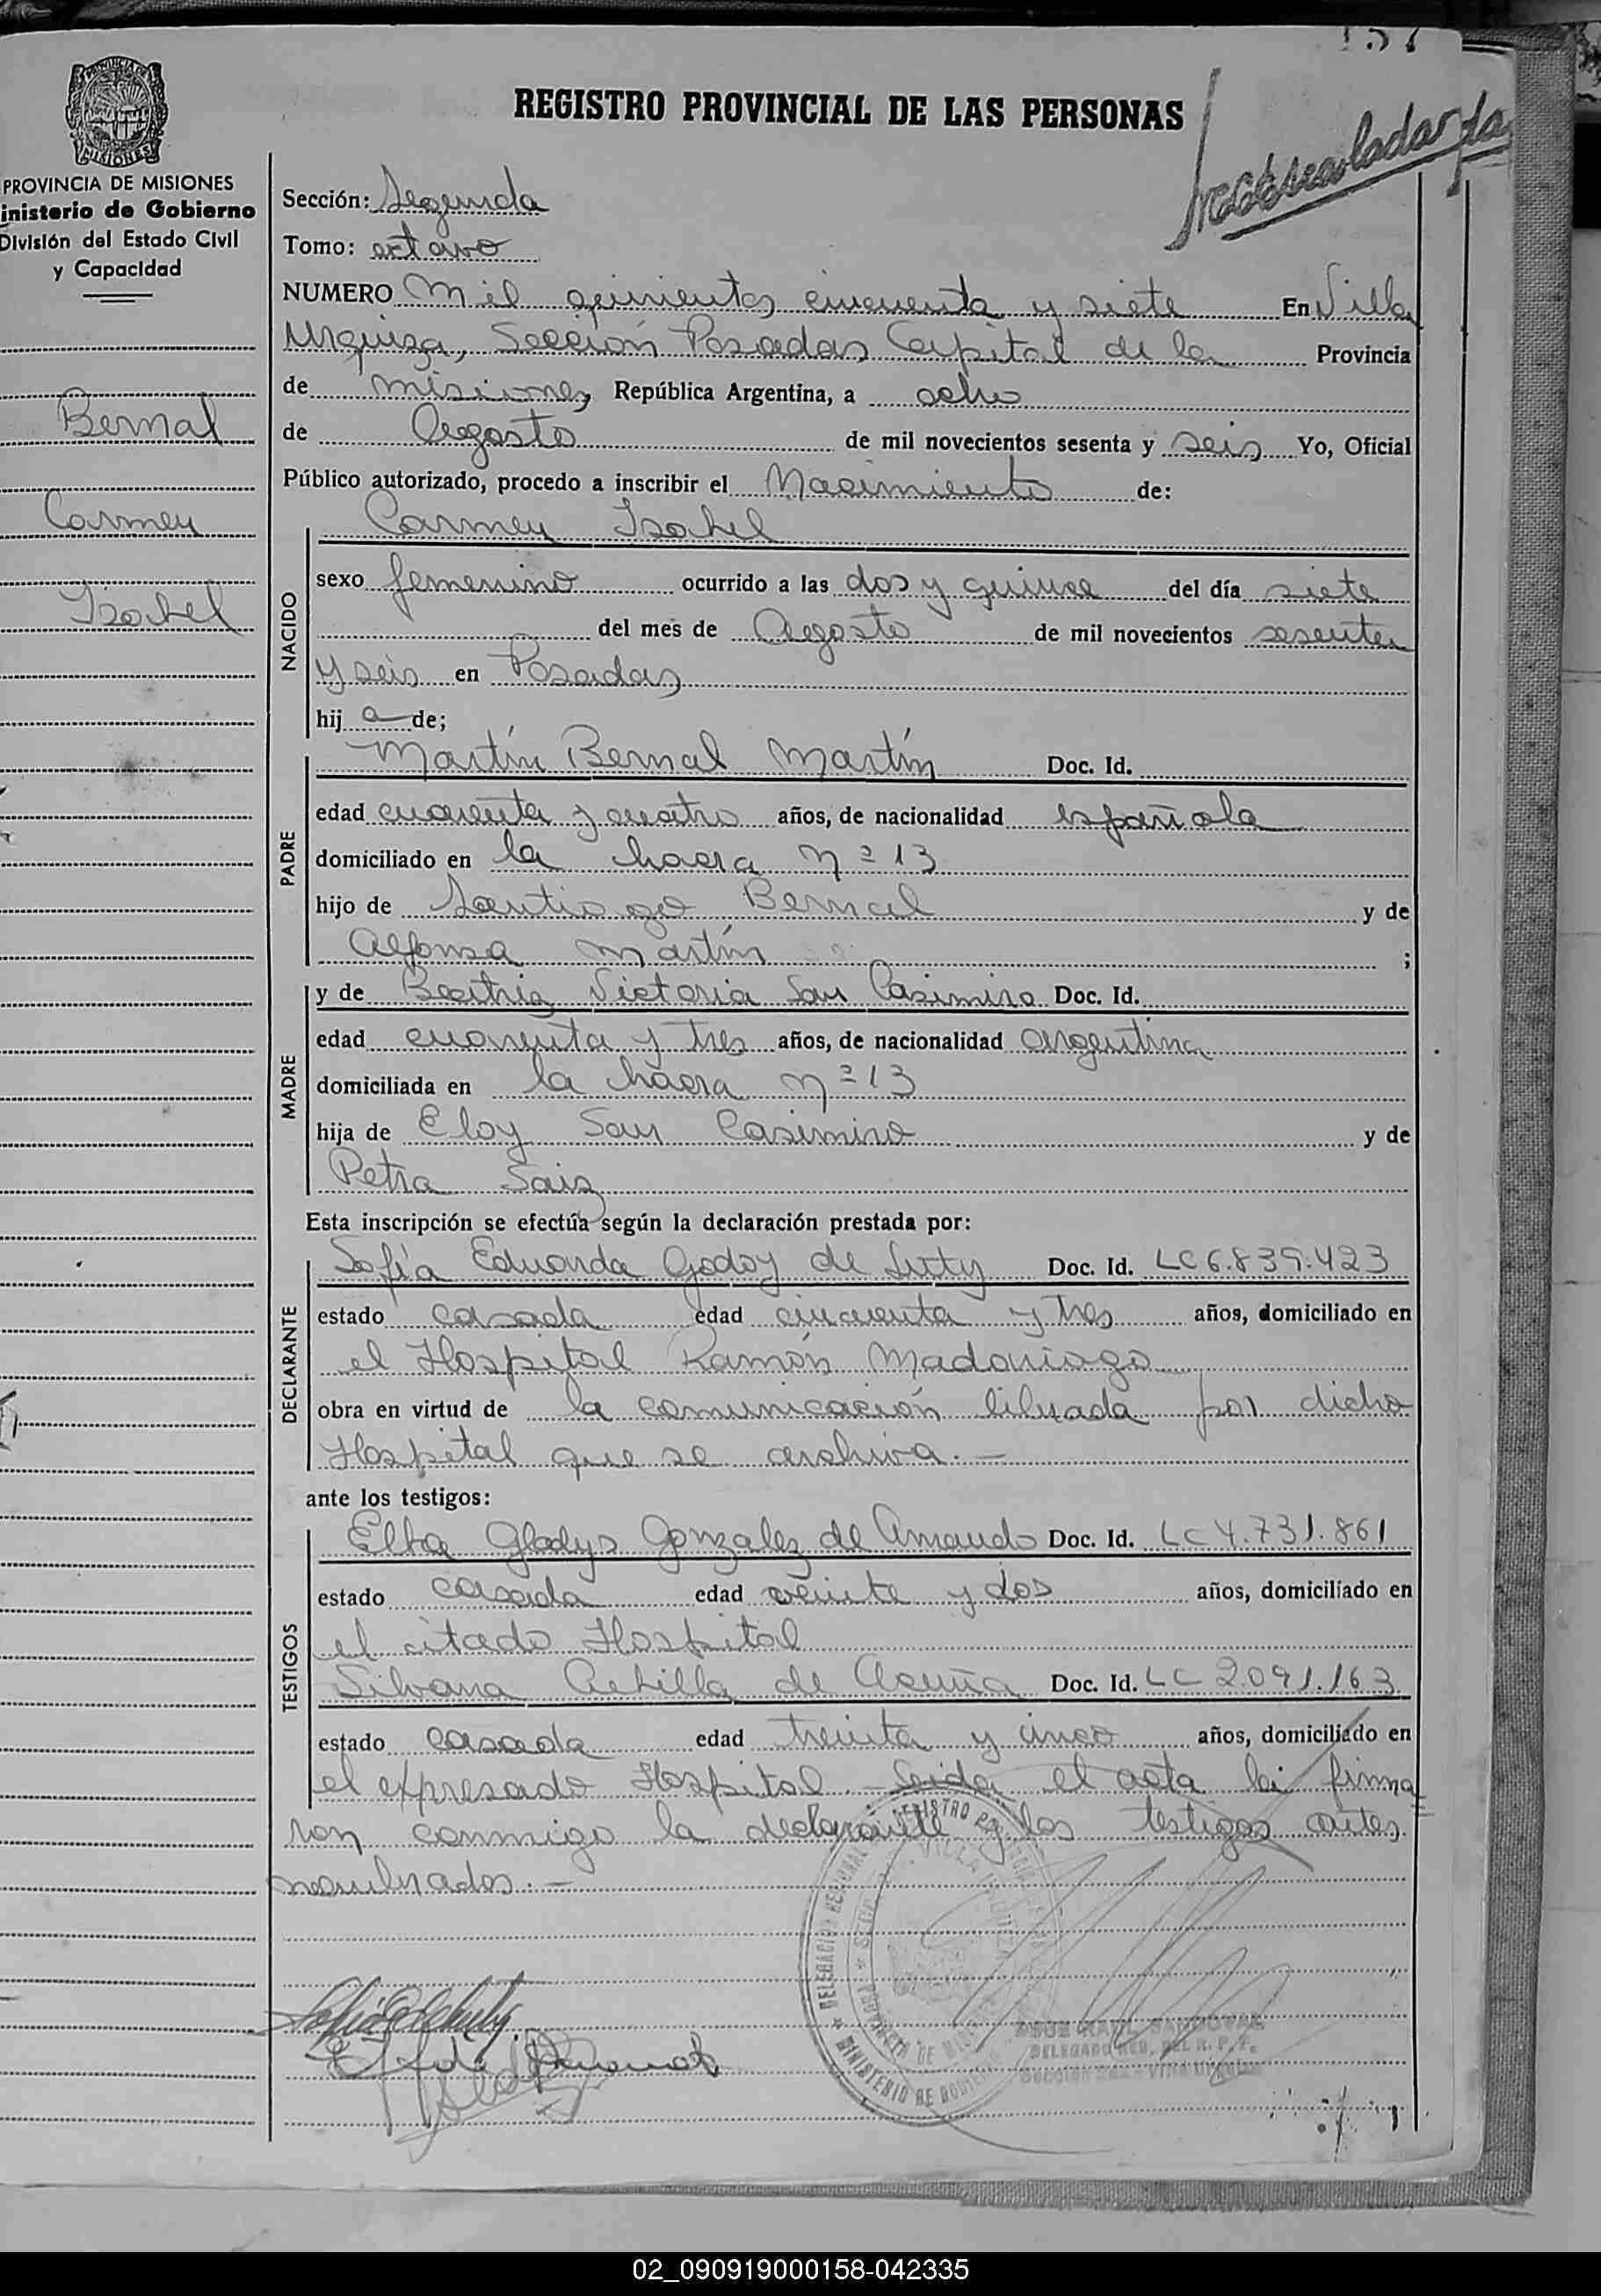 157
REGISTRO PROVINCIAL DE LAS PERSONAS
MISIONES
PROVINCIA DE MISIONES
inisterio de Gobierno
División del Estado Civil
y Capacidad
Bernal
Carmen
Isabel
Sección: Segunda
Tomo: octavo
NUMERO Mil quinientos cincuenta y siete En Villa
Urquiza, Sección Posadas Capital de la Provincia
de Misiones República Argentina, a ocho
de Agosto de mil novecientos sesenta y seis Yo, Oficial
Público autorizado, procedo a inscribir el Nacimiento de:
NACIDO
Carmen Isabel
sexo femenino ocurrido a las dos y quince del día siete
del mes de Agosto de mil novecientos sesenta
y seis en Posadas
hij a de;
PADRE
Martín Bernal Martín Doc. Id.
edad cuarenta y cuatro años, de nacionalidad española
domiciliado en la chacra nº 13
hijo de Santiago Bernal y de
Alfonsa Martín ;
MADRE
y de Beatriz Victoria San Casimiro Doc. Id.
edad cuarenta y tres años, de nacionalidad argentina
domiciliada en la chacra nº 13
hija de Eloy San Casimiro y de
Petra Saiz
Esta inscripción se efectúa según la declaración prestada por:
DECLARANTE
Sofía Eduarda Godoy de Doc. Id. LC 6.839.423
estado casada edad cincuenta y tres años, domiciliado en
el Hospital Ramón Madariaga
obra en virtud de la comunicación librada por dicho
Hospital que se archiva.-
ante los testigos:
TESTIGOS
Elba Gladys Gonzalez de Doc. Id. LC 4.731.861
estado casada edad veinte y dos años, domiciliado en
el citado Hospital
Silvana de Acuña Doc. Id. LC 2.091.163
estado casada edad treinta y cinco años, domiciliado en
el expresado Hospital.- Leida el acta la firma
ron conmigo la declarante y los testigos antes
nombrados.-
RAUL SANDOVAL
DELEGADO REG. DEL R. P. P.
Sección 2da - Villa Urquiza
02_090919000158-042335